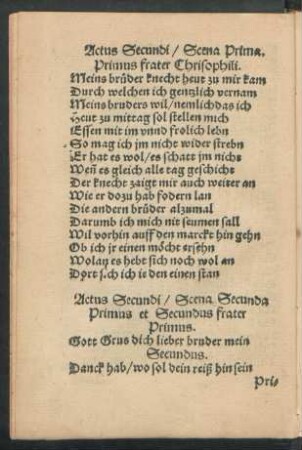 Actus Secundi / Scena Prima.
Primus frater Chrisophili.
Meins brůder knecht heut zu mir kam
Durch welchen ich gentzlich vernam
Meins bruders wil / nemlich das ich
Heut zu mittag sol stellen mich
Essen mit im vnnd frolich lebn
So mag ich jm nicht wider strebn
Er hat es wol / es schatt jm nichs
Weñ es gleich alle tag geschicht
Der knecht zaigt mir auch weiter an
Wie er dozu hab fodern lan
Die andern brüder alzumal
Darumb ich mich nit seumen sall
Wil vorhin auff den marckt hin gehn
Ob ich jr einen möcht ersehn
Wolan es hebt sich noch wol an
Dort sich ich ie den einen stan
Actus Secundi / Scena Secunda
Primus et Secundus frater
Primus.
Gott Grus dich lieber bruder mein
Secundus.
Danck hab / wo sol dein reiß hin sein
Pri-